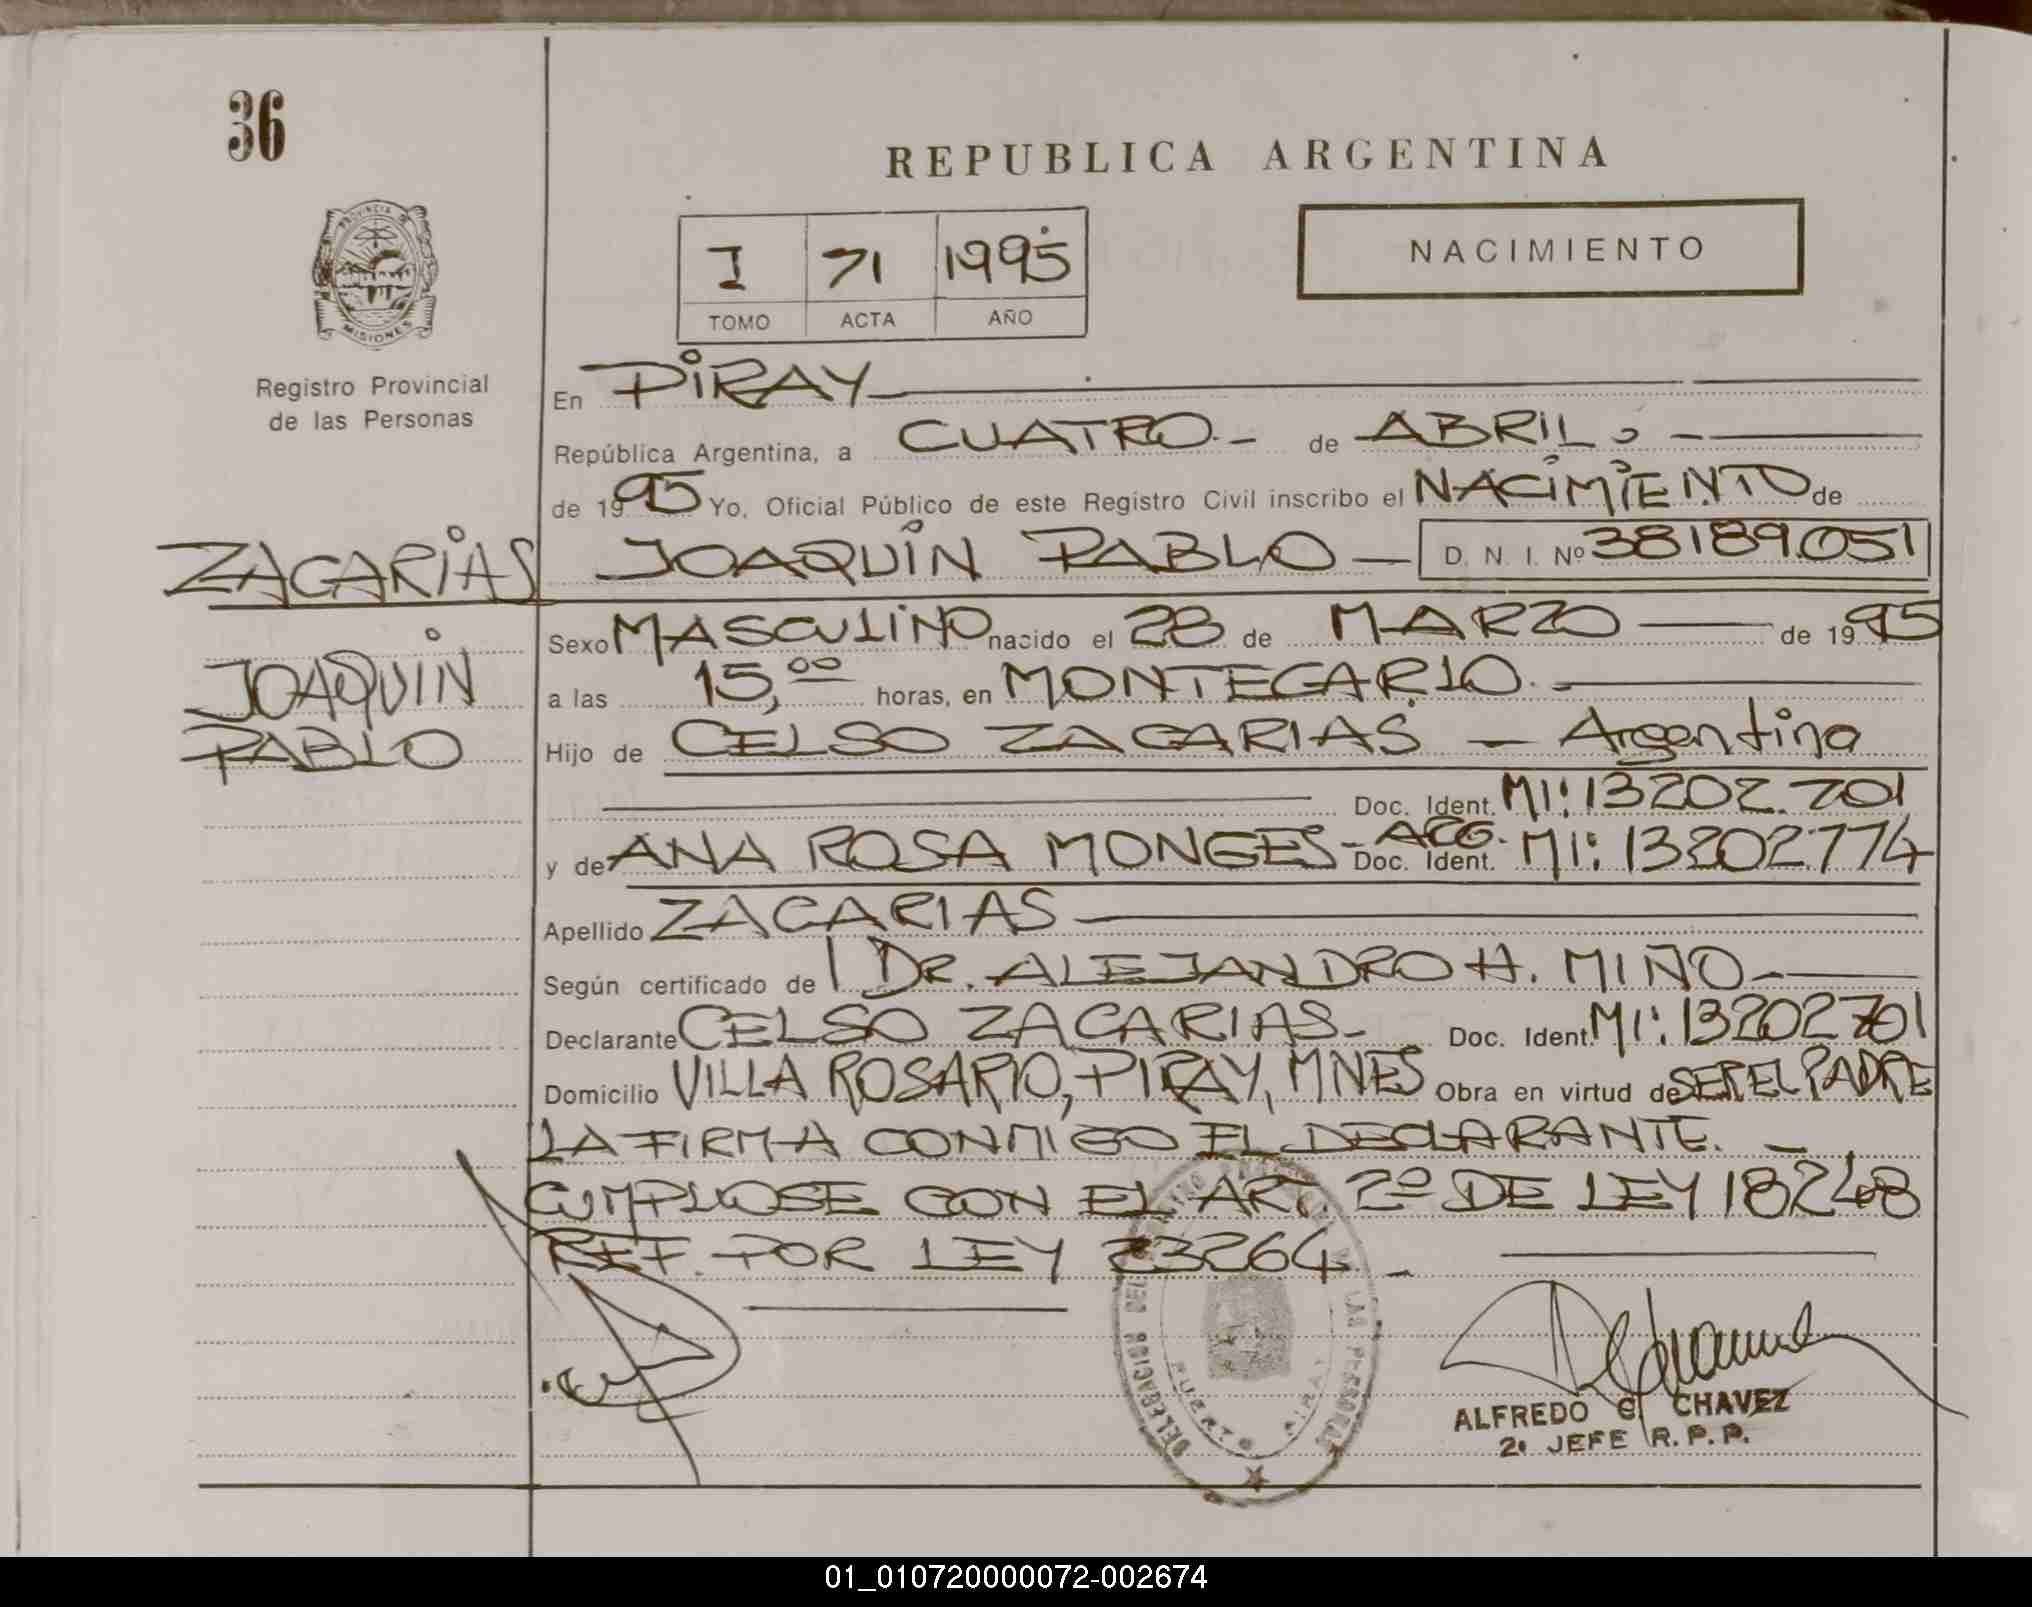 36
REPUBLICA ARGENTINA
PROVINCIA DE
MISIONES
I 71 1995
TOMO ACTA AÑO
NACIMIENTO
Registro Provincial
de las Personas
En PIRAY
República Argentina, a CUATRO.- de ABRIL.-
de 1995 Yo, Oficial Público de este Registro Civil inscribo el NACIMIENTO de
ZACARIAS JOAQUIN PABLO - D. N. I. Nº 38189.051
JOAQUIN
PABLO
Sexo MASCULINO nacido el 28 de MARZO de 1995
a las 15,00 horas, en MONTECARLO.-
Hijo de CELSO ZACARIAS - Argentina
Doc. Ident. MI: 13202.701
y de ANA ROSA MONGES - ARG. Doc. Ident. MI: 13202774
Apellido ZACARIAS
Según certificado de DR. ALEJANDRO H. MIÑO -
Declarante CELSO ZACARIAS- Doc. Ident. MI: 13202701
Domicilio VILLA ROSARIO, PIRAY, MNES Obra en virtud de SER EL PADRE
LA FIRMA CONMIGO EL DECLARANTE. -
CUMPLIOSE CON EL ART. 2º DE LEY 18248
REF. POR LEY 23264 -
DELEGACION DEL REGISTRO PROVINCIAL DE LAS PERSONAS
PUERTO PIRAY
ALFREDO C. CHAVEZ
2º JEFE R. P. P.
01_010720000072-002674